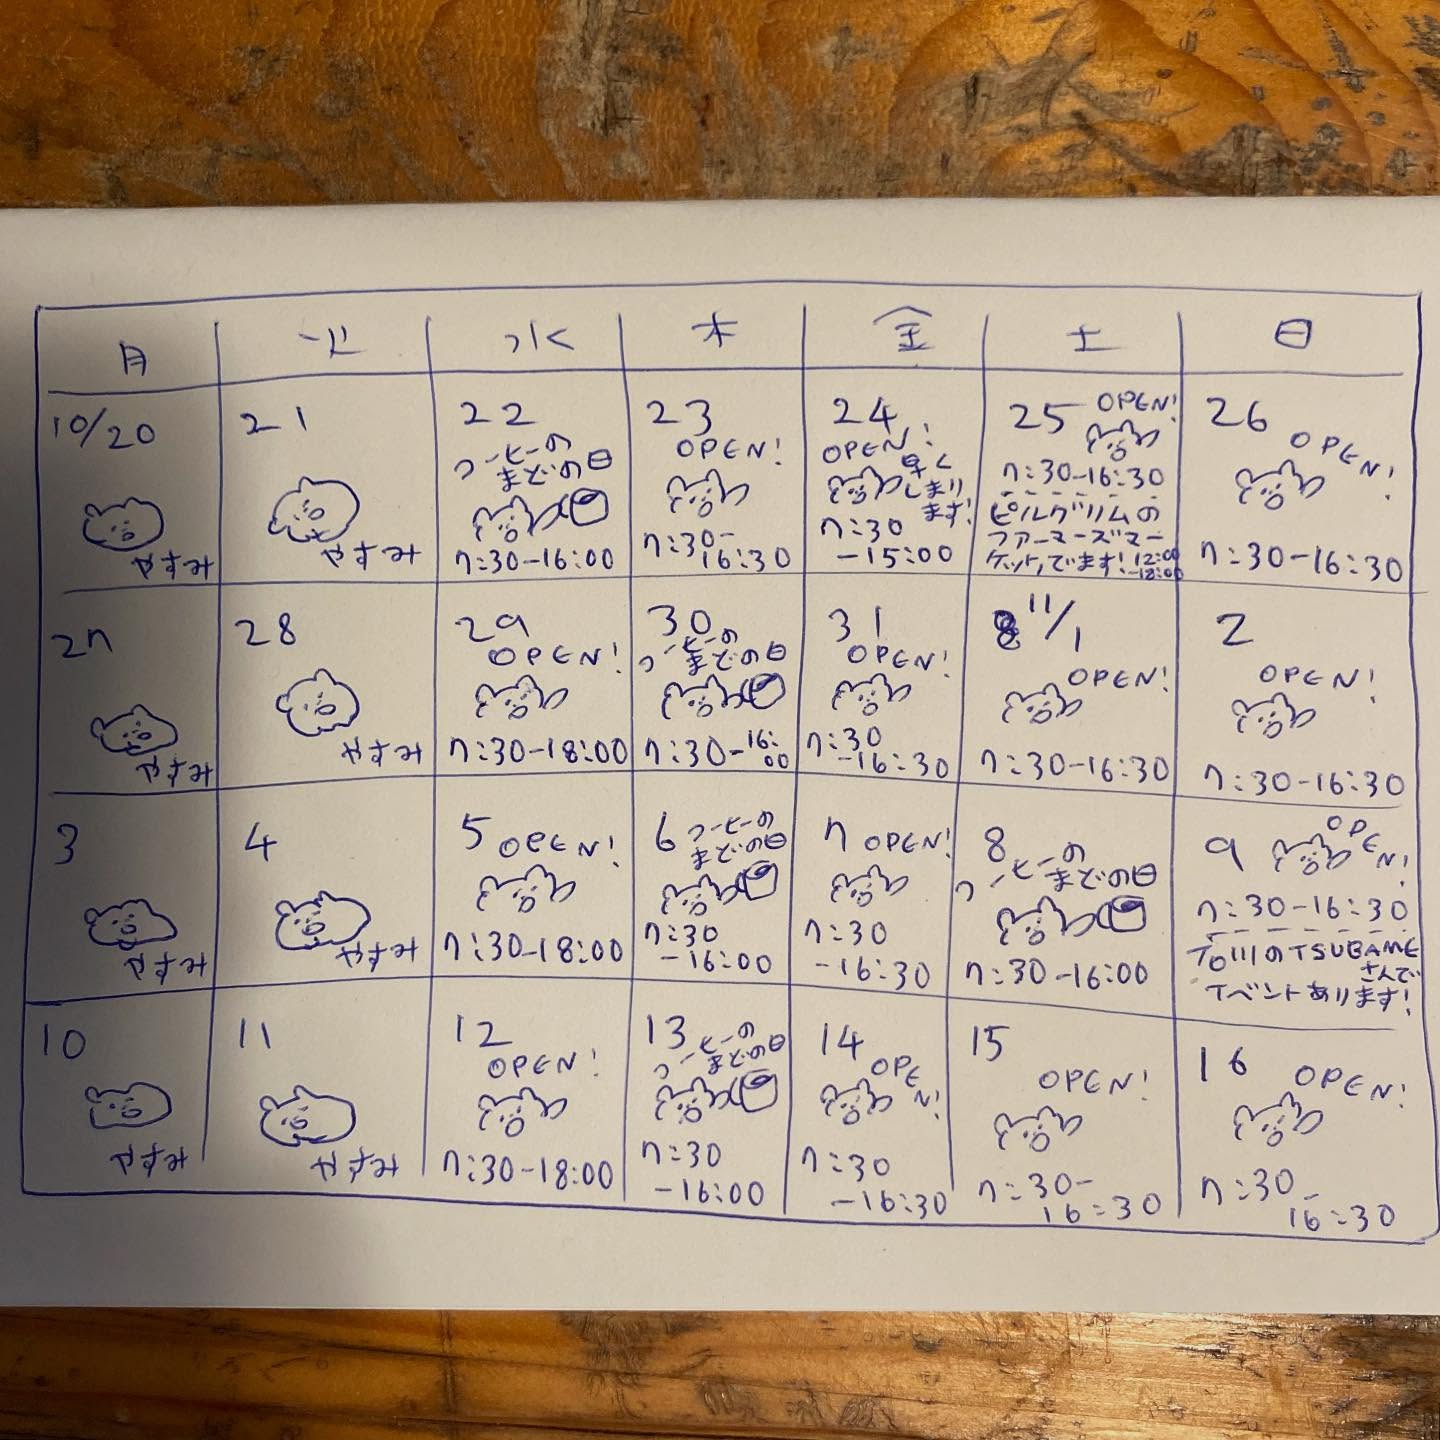 月 火 水 木 金 土 日
10/20
やすみ
21
やすみ
22
コーヒーの
までの日
7:30-16:00
23
OPEN!
7:30-
16:30
24
OPEN!
早く
しまり
ます!
7:30
-15:00
25 OPEN!
7:30-16:30
ピルグリムの
ファーマーズマー
ケット、でます! 12:00
-18:00
26
OPEN!
7:30-16:30
27
やすみ
28
やすみ
29
OPEN!
7:30-18:00
30
コーヒーの
までの日
7:30-16:
00
31
OPEN!
7:30
-16:30
11/1
OPEN!
7:30-16:30
2
OPEN!
7:30-16:30
3
やすみ
4
やすみ
5 OPEN!
7:30-18:00
6 コーヒーの
までの日
7:30
-16:00
7 OPEN!
7:30
-16:30
8
コーヒーの
までの日
7:30-16:00
9 OPE
N!
7:30-16:30
のTSUBAME
さんで
イベントあります!
10
やすみ
11
やすみ
12
OPEN!
7:30-18:00
13 コーヒーの
までの日
7:30
-16:00
14
OPE
N!
7:30
-16:30
15
OPEN!
7:30-
16:30
16 OPEN!
7:30-
16:30